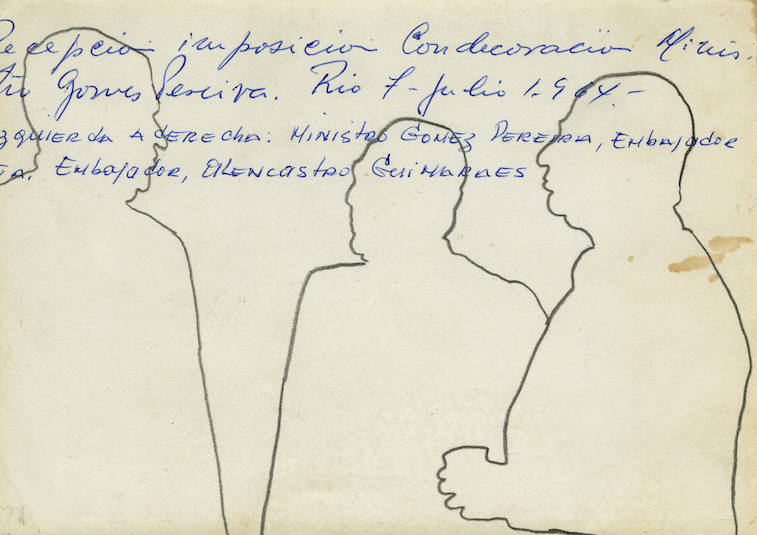 Recepcion imposicion Condecoración Minis.
tro Gomes Pereira. Rio 7-Julio 1.964.-
IZQUIERDA A DERECHA: MINISTRO GOMEZ PEREIRA, EMBAJADOR
EMBAJADOR, ALENCASTRO GUIMARAES